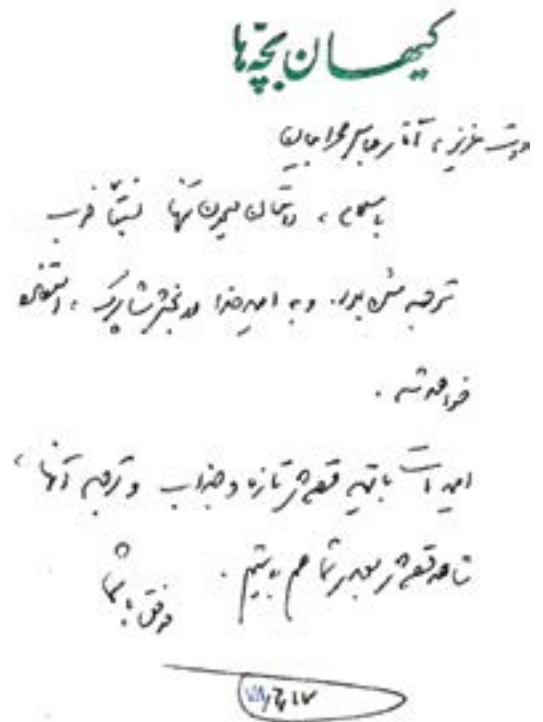 کیهان بچّه‌ها
دوست عزیز، آقای عباس
با سلام، داستان میمون تنها نسبتاً خوب
ترجمه شده بود. و به امید خدا در بخش شاپرک، استفاده
خواهد شد.
امید است با تهیه قصه‌های تازه و جذاب و ترجمه آنها،
شاهد قصه‌های بعدی شما هم باشیم.
موفق باشید